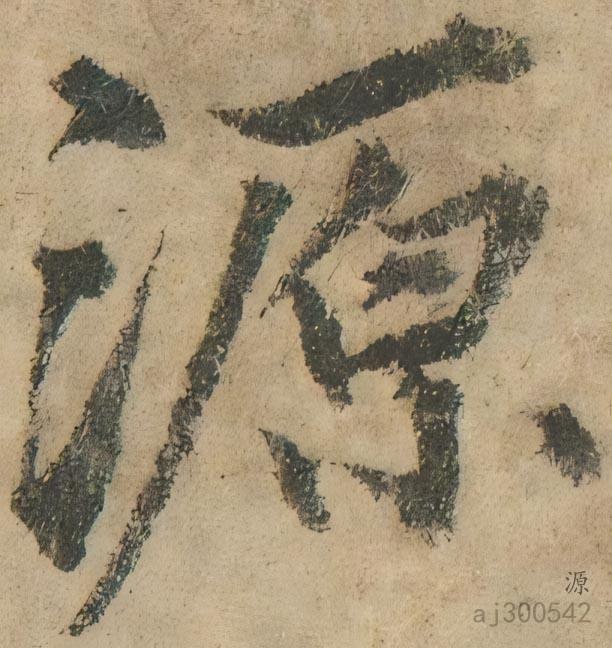 源
源
aj300542